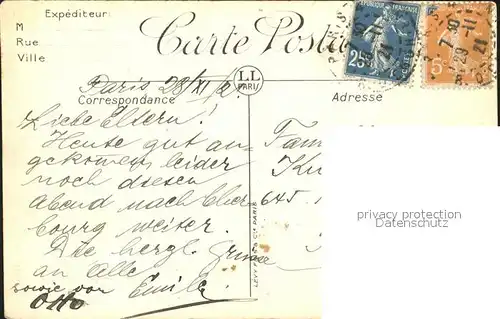 Expéditeur
M
Rue
Ville
Carte Posta
RÉPUBLIQUE FRANÇAISE
25
5
Paris 28/XI
LL
PARIS
Correspondance
Adresse
Liebe Eltern!
Heute gut an-
gekommen leider
noch diesen
Abend nach Cher
bourg weiter.
Die herzl. Grüsse
an Alle
Emile
sowie von
Otto
Fam
645
LÉVY PARIS
privacy protection
Datenschutz